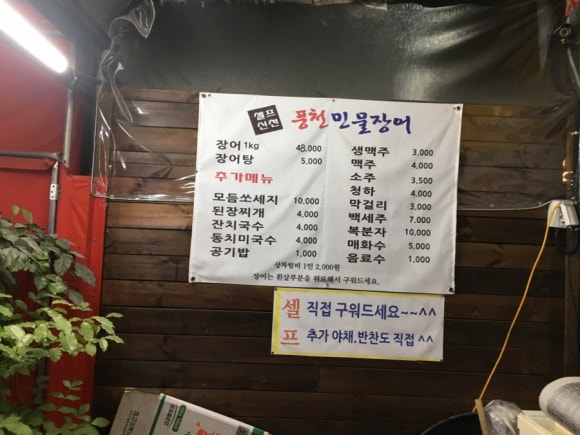 셀프
신선
풍천 민물장어
장어 1kg 48,000
장어탕 5,000
추가메뉴
모듬쏘세지 10,000
된장찌개 4,000
잔치국수 4,000
동치미국수 4,000
공기밥 1,000
생맥주 3,000
맥주 4,000
소주 3,500
청하 4,000
막걸리 3,000
백세주 7,000
복분자 10,000
매화수 5,000
음료수 1,000
상차림비 1인 2,000원
장어는 흰살부분을 위로해서 구워드세요.
셀 직접 구워드세요~~^^
프 추가 야채.반찬도 직접 ^^